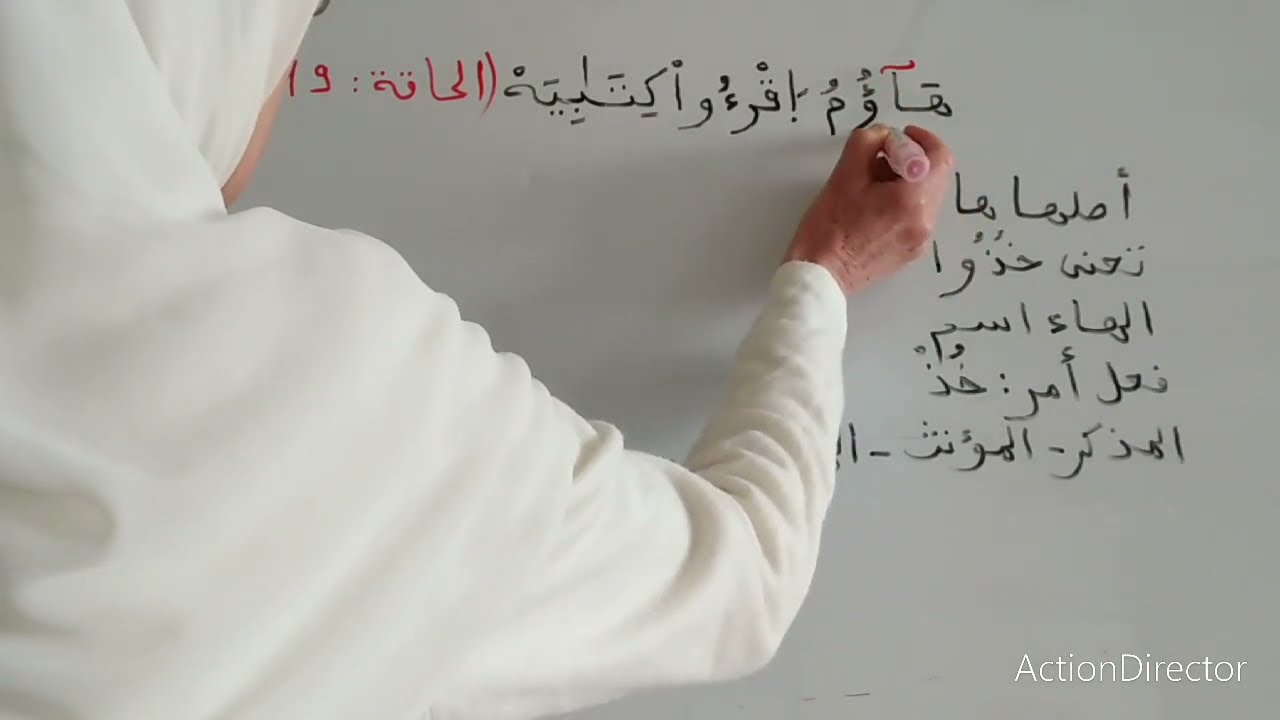 هَآؤُمُ اِقْرَءُواْ كِتَٰبِيَهْ (الحاقة: 19
أصلها ها
تعني خُذُوا
الهاء اسم
فعل أمر: خُذْ
المذكر - المؤنث -
ActionDirector